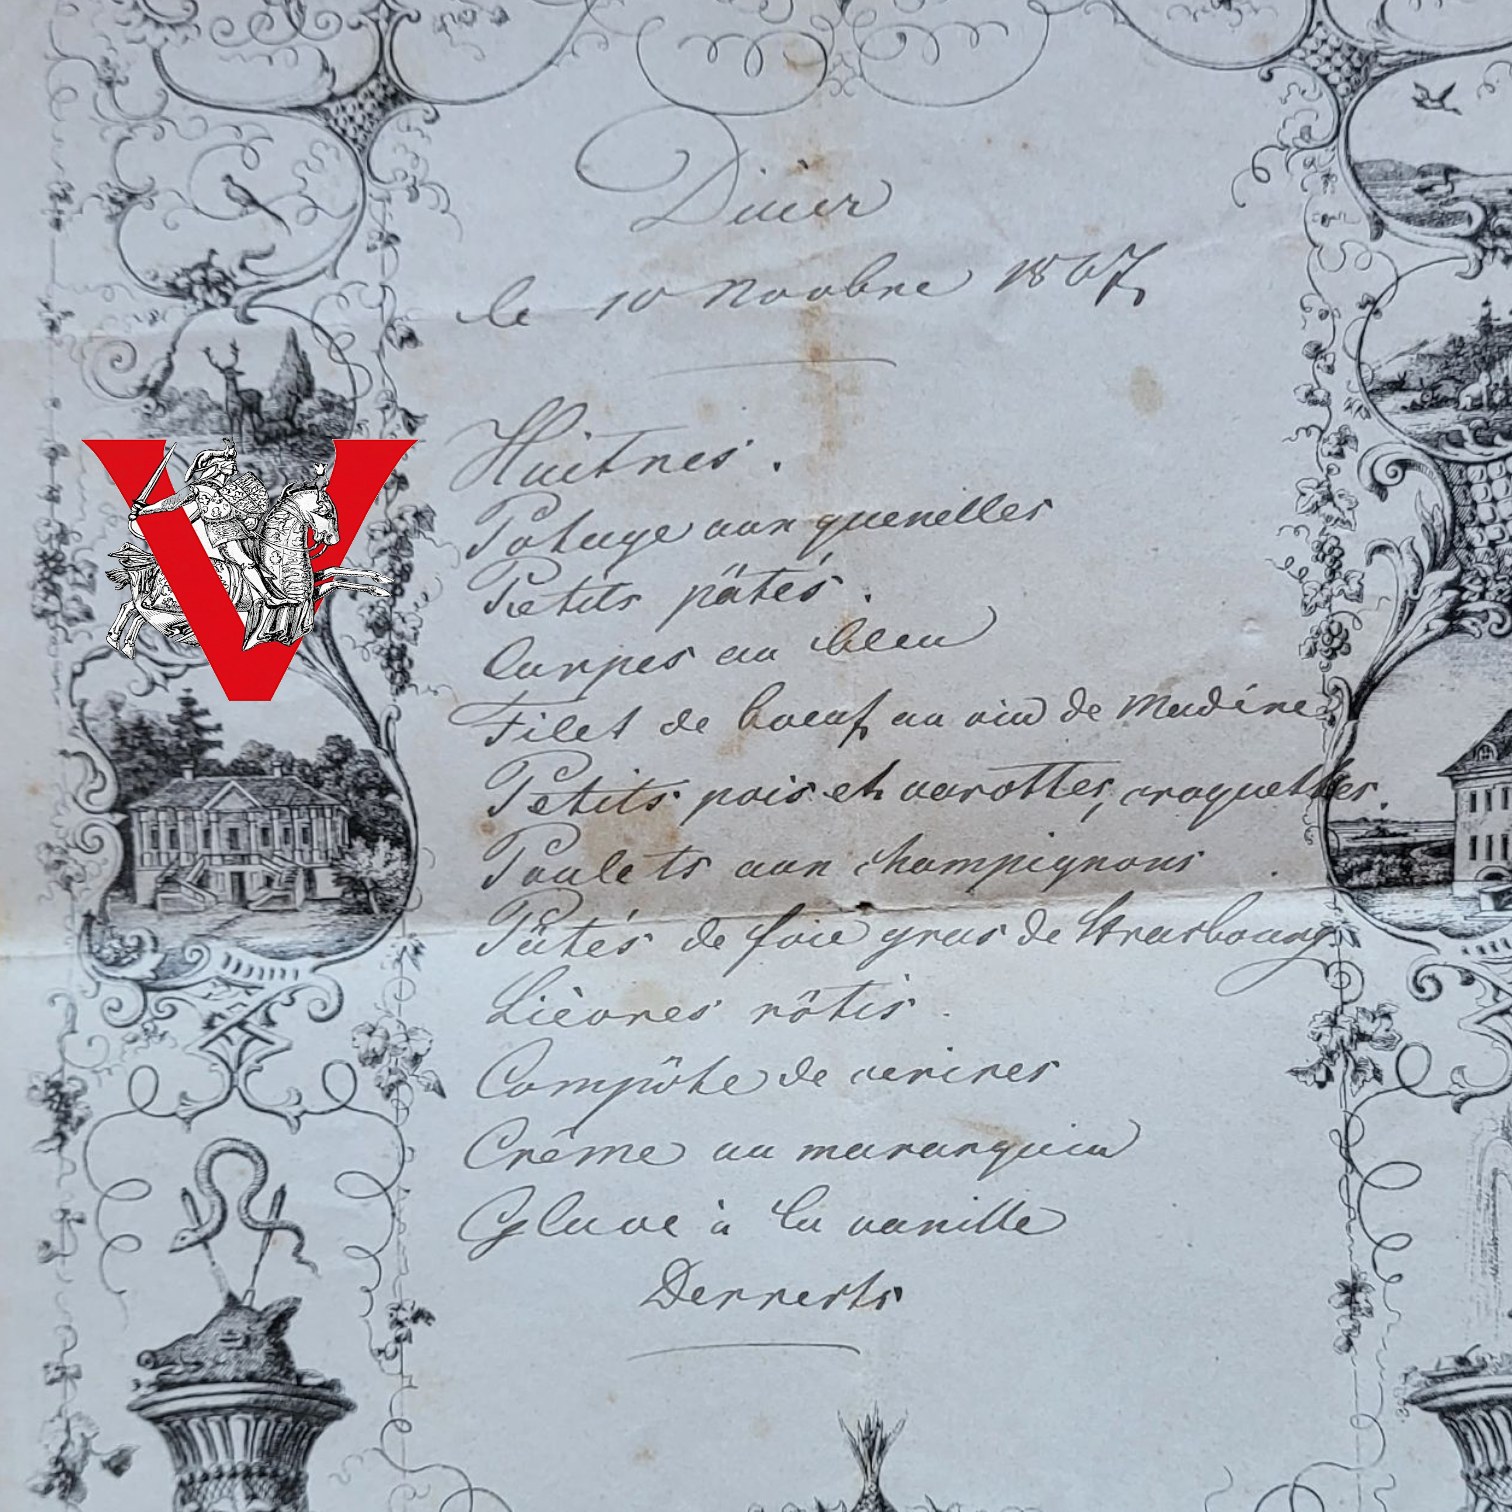 Diner
le 10 Novbre 1867
Huitres.
Potage aux quenelles
Petits pâtés.
Carpes au bleu
Filet de boeuf au vin de Madère
Petits pois et carottes, croquettes.
Poulets aux champignons
Pâtés de foie gras de Strasbourg
Lièvres rôtis.
Compôte de cerises
Crême au marasquin
Glace à la vanille
Desserts
V